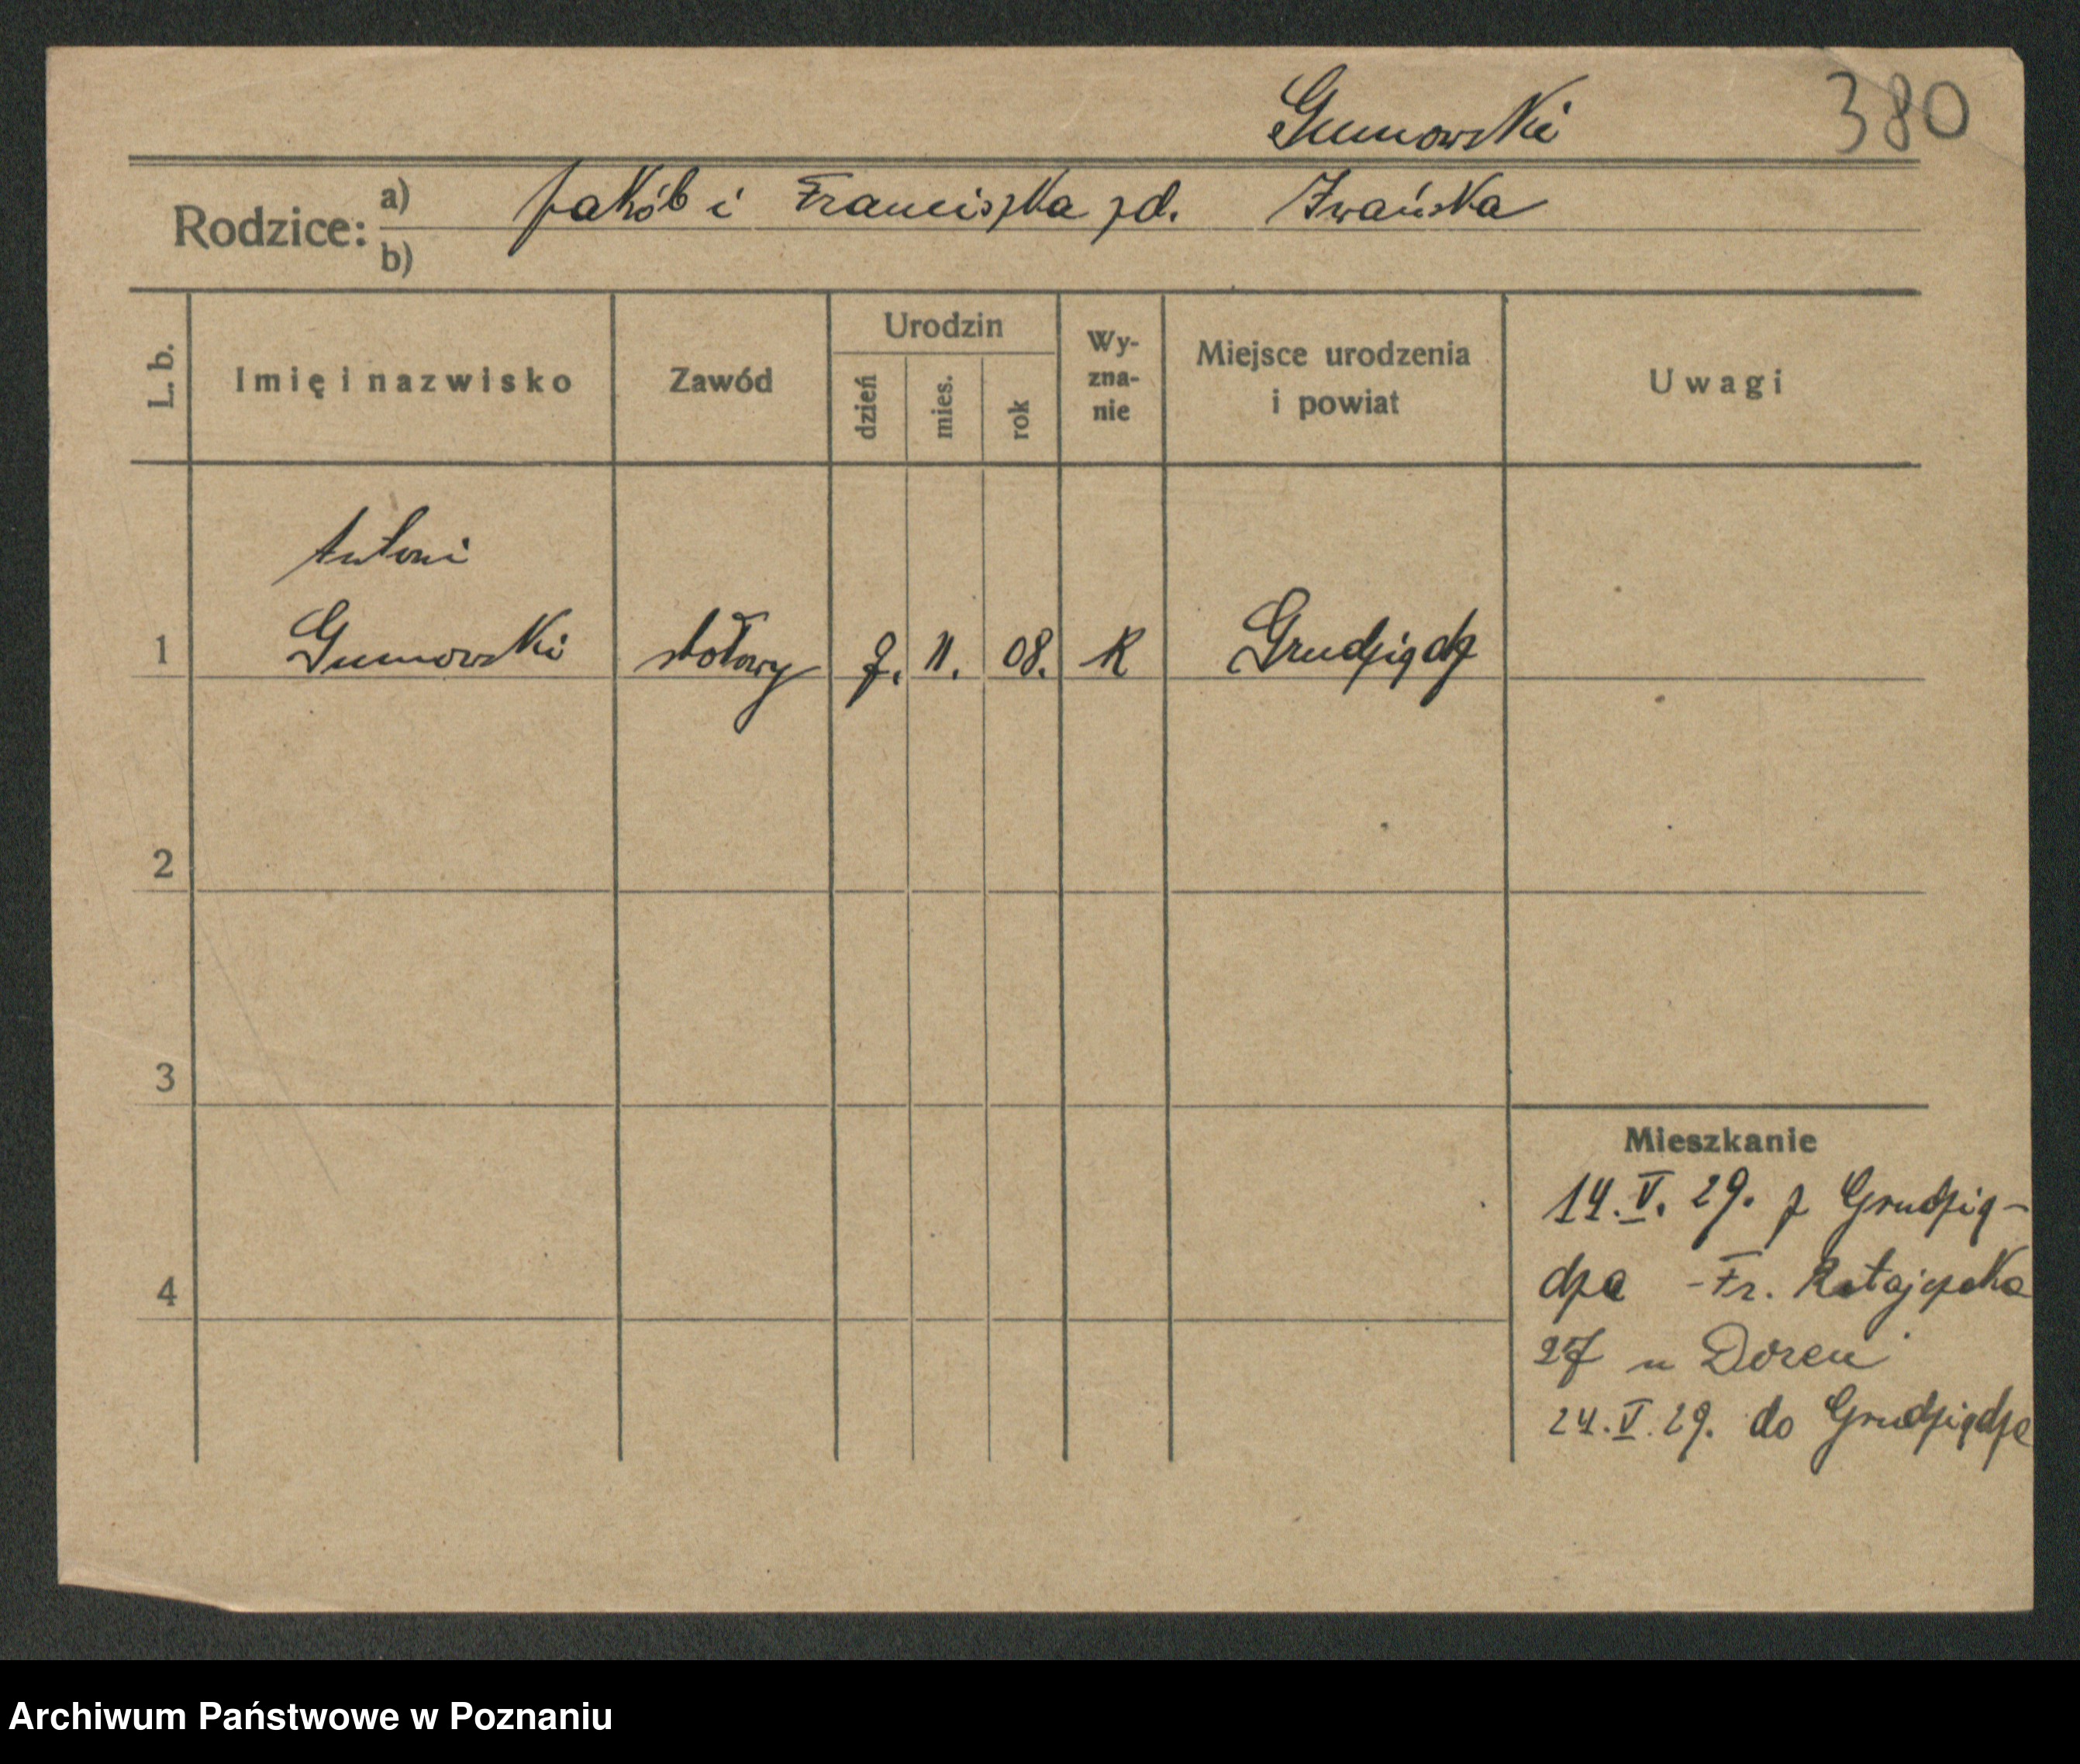 Gumowski 380
Rodzice: a) Jakób i Franciszka zd. Iwańska
b)
L. b. Imię i nazwisko Zawód Urodzin dzień mies. rok Wy-zna-nie Miejsce urodzenia i powiat Uwagi
Antoni
1 Gumowski stołowy 7. 11. 08. K Grudziądz
2
3
Mieszkanie
14.V.29. z Grudzią-
dza - Fr. Ratajczaka
4
27 u Doren
24.V.29. do Grudziądza
Archiwum Państwowe w Poznaniu